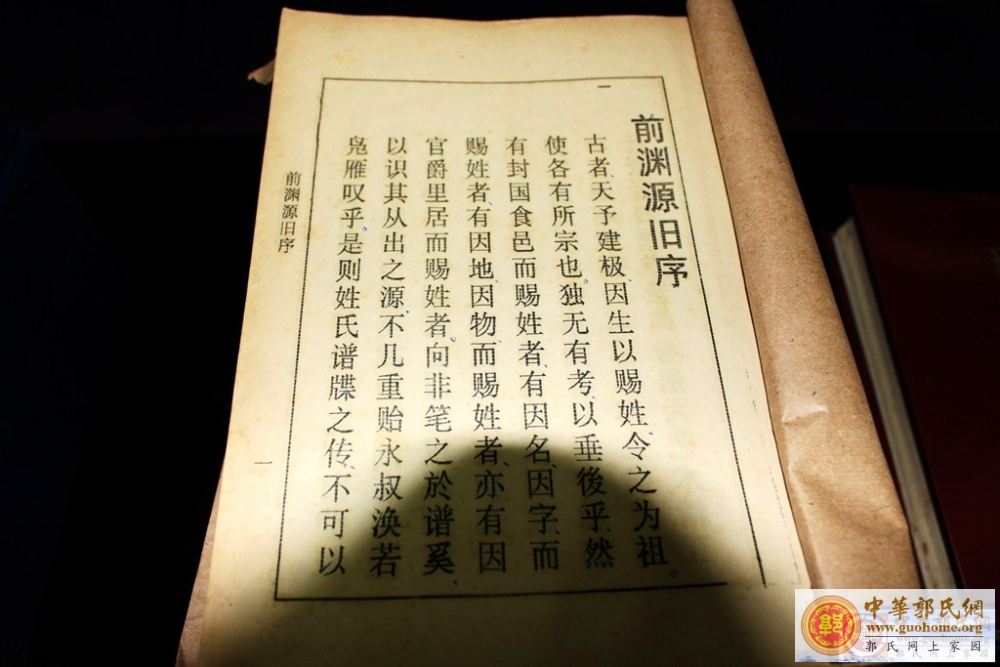 一
前渊源旧序
古者、天予建极、因生以赐姓、令之为祖。
使各有所宗也。独无有考、以垂後乎、然
有封国食邑而赐姓者、有因名、因字、而
赐姓者、有因地、因物、而赐姓者、亦有因
官爵里居而赐姓者、向非笔之於谱、奚、
以识其从出之源、不几重贻永叔涣若
凫雁叹乎、是则姓氏谱牒之传、不可以
前渊源旧序
一
中華郭氏網
www.guohome.org
郭氏网上家园